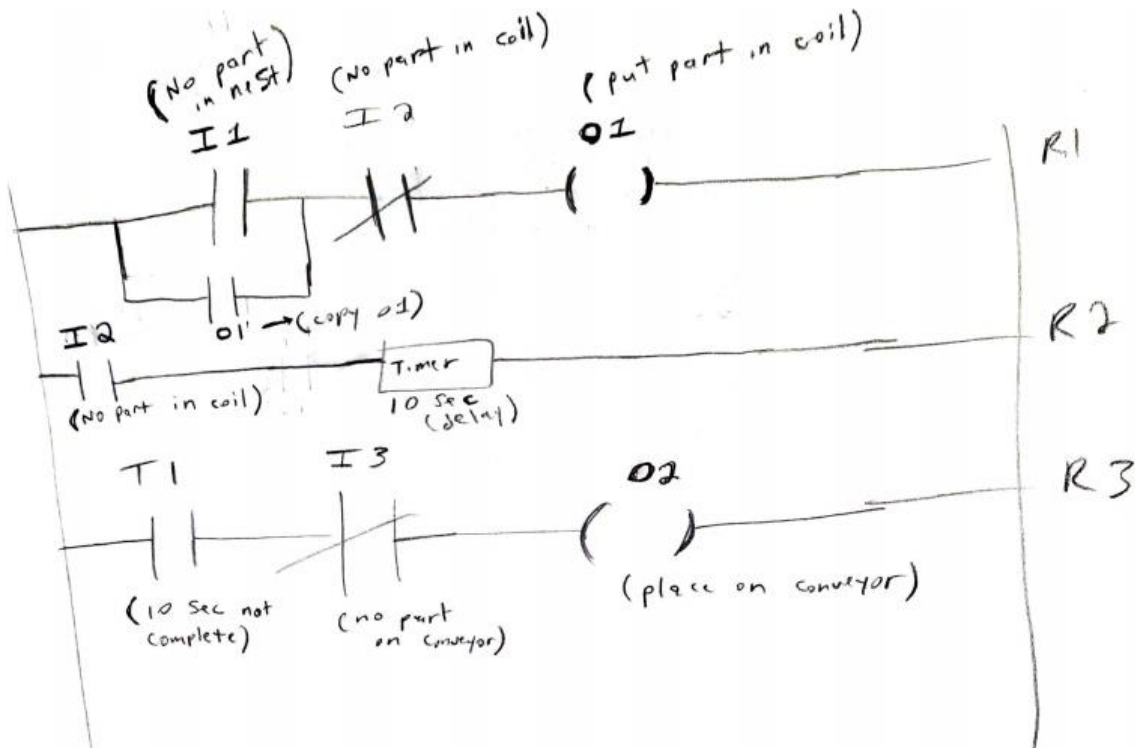 (No part
in nest)
I1
(No part in coil)
I2
(put part in coil)
O1
R1
O1 → (copy O1)
I2
(No part in coil)
Timer
10 sec
(delay)
R2
T1
(10 sec not
complete)
I3
(no part
on conveyor)
O2
(place on conveyor)
R3